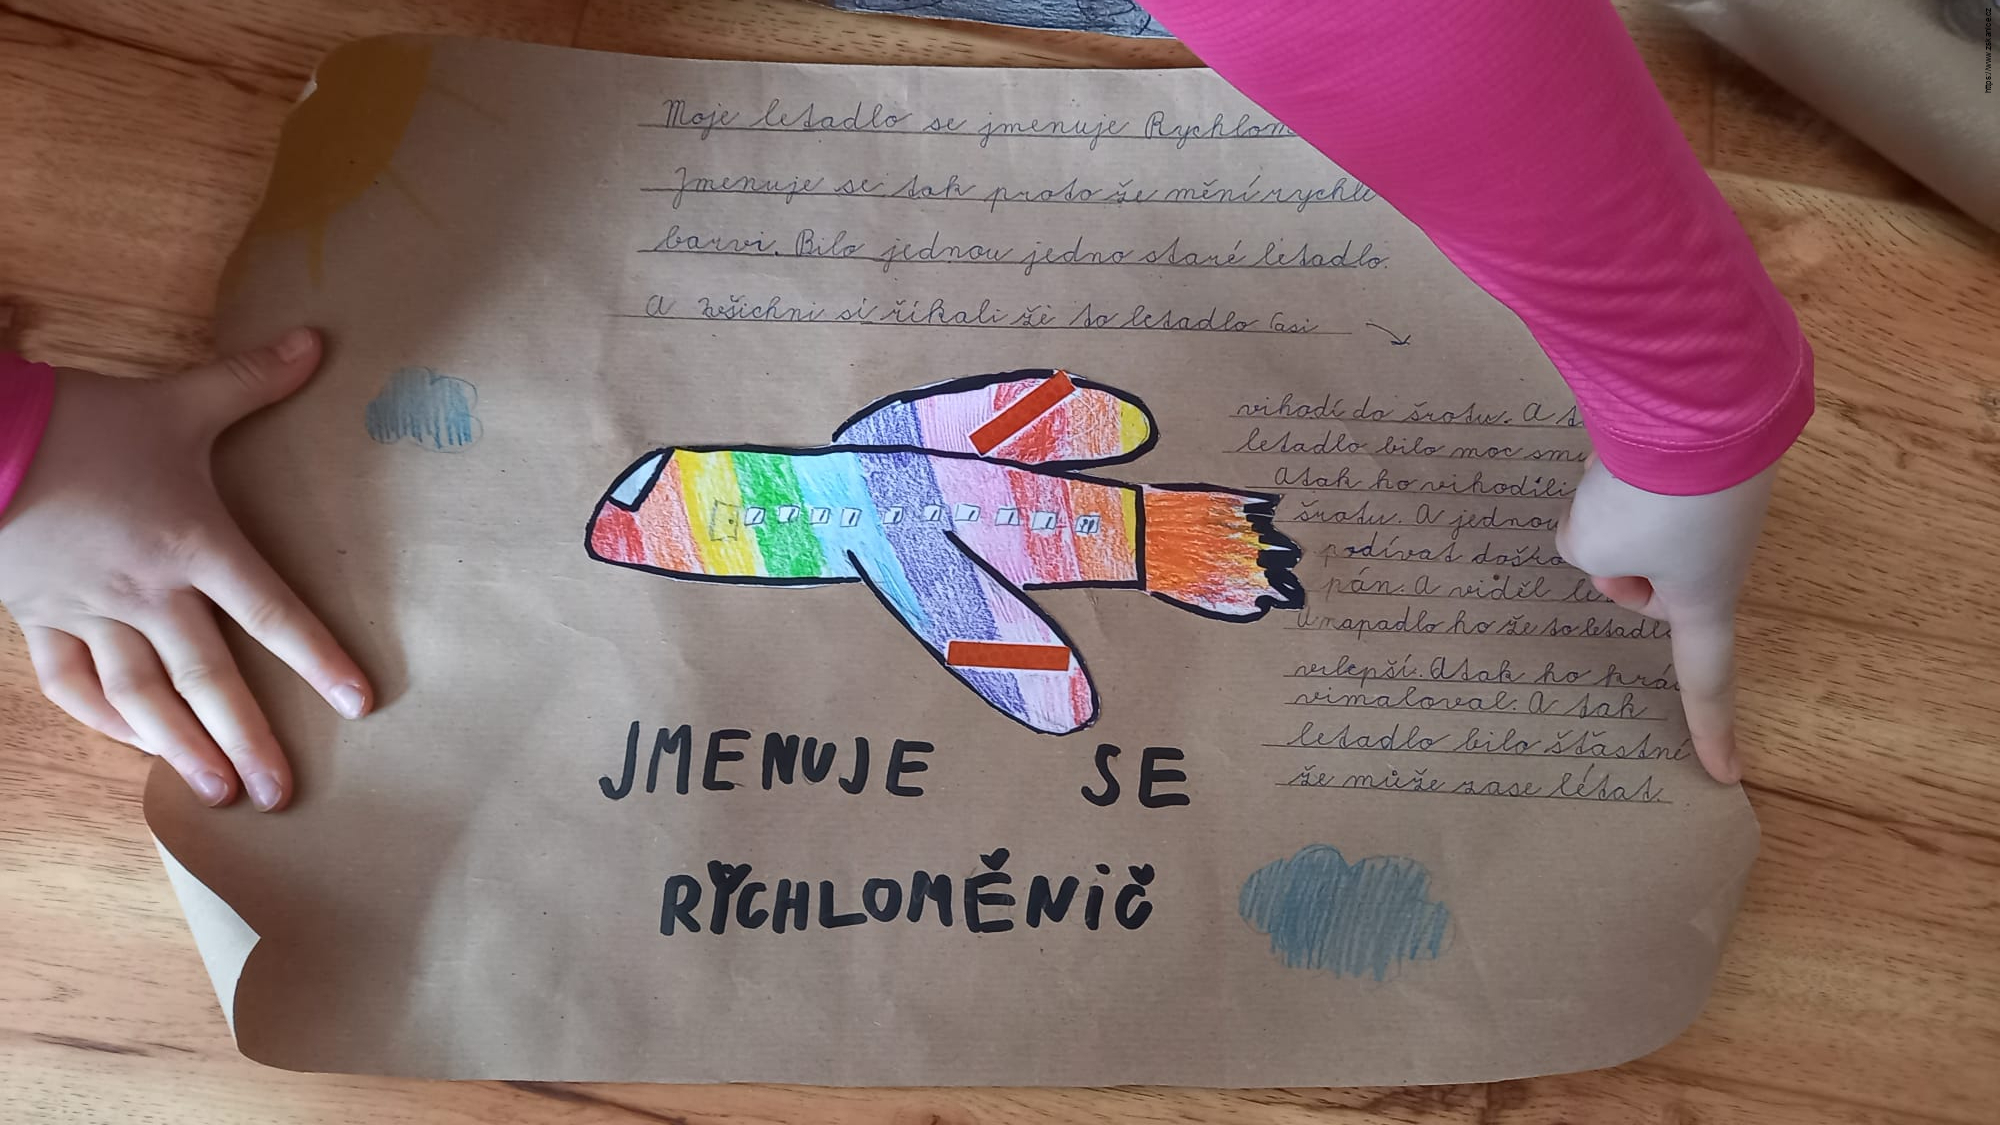 Moje letadlo se jmenuje Rychlom
Jmenuje se tak proto že mění rychle
barvi. Bilo jednou jedno staré letadlo.
A všichni si říkali že to letadlo asi
vihodí do šrotu. A t
letadlo bilo moc smu
A tak ho vihodili
šrotu. A jednou
podívat došro
pán. A viděl le
A napadlo ho že to letadl
vilepší. A tak ho krá
vimaloval. A tak
letadlo bilo šťastné
že může zase létat.
JMENUJE SE
RYCHLOMĚNiČ
https://www.zskanice.cz